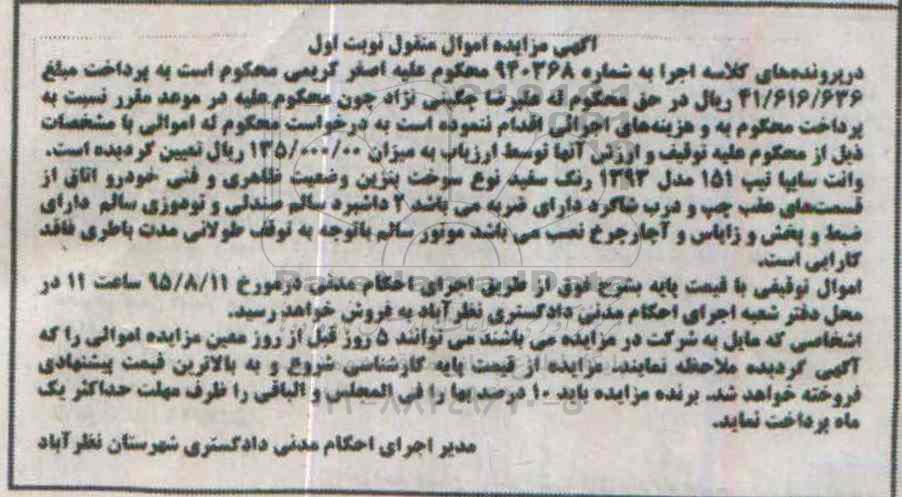 آگهی مزایده اموال منقول نوبت اول
درپرونده‌های کلاسه اجرا به شماره ۹۴۰۳۶۸ محکوم علیه اصغر کریمی محکوم است به پرداخت مبلغ
۴۱/۶۱۶/۶۳۶ ریال در حق محکوم له علیرضا چگینی نژاد چون محکوم علیه در موعد مقرر نسبت به
پرداخت محکوم به و هزینه‌های اجرائی اقدام ننموده است به درخواست محکوم له اموالی با مشخصات
ذیل از محکوم علیه توقیف و ارزش آنها توسط ارزیاب به میزان ۱۳۵/۰۰۰/۰۰ ریال تعیین گردیده است.
وانت سایپا تیپ ۱۵۱ مدل ۱۳۹۳ رنگ سفید نوع سوخت بنزین وضعیت ظاهری و فنی خودرو اتاق از
قسمت‌های عقب چپ و درب شاگرد دارای ضربه می باشد ۲ داشبرد سالم صندلی و تودوزی سالم دارای
ضبط و پخش و زاپاس و آچارچرخ نصب می باشد موتور سالم باتوجه به توقف طولانی مدت باطری فاقد
کارایی است.
اموال توقیفی با قیمت پایه بشرح فوق از طریق اجرای احکام مدنی درمورخ ۹۵/۸/۱۱ ساعت ۱۱ در
محل دفتر شعبه اجرای احکام مدنی دادگستری نظرآباد به فروش خواهد رسید.
اشخاصی که مایل به شرکت در مزایده می باشند می توانند ۵ روز قبل از روز معین مزایده اموالی را که
آگهی گردیده ملاحظه نمایند. مزایده از قیمت پایه کارشناسی شروع و به بالاترین قیمت پیشنهادی
فروخته خواهد شد. برنده مزایده باید ۱۰ درصد بها را فی المجلس و الباقی را ظرف مهلت حداکثر یک
ماه پرداخت نماید.
مدیر اجرای احکام مدنی دادگستری شهرستان نظرآباد